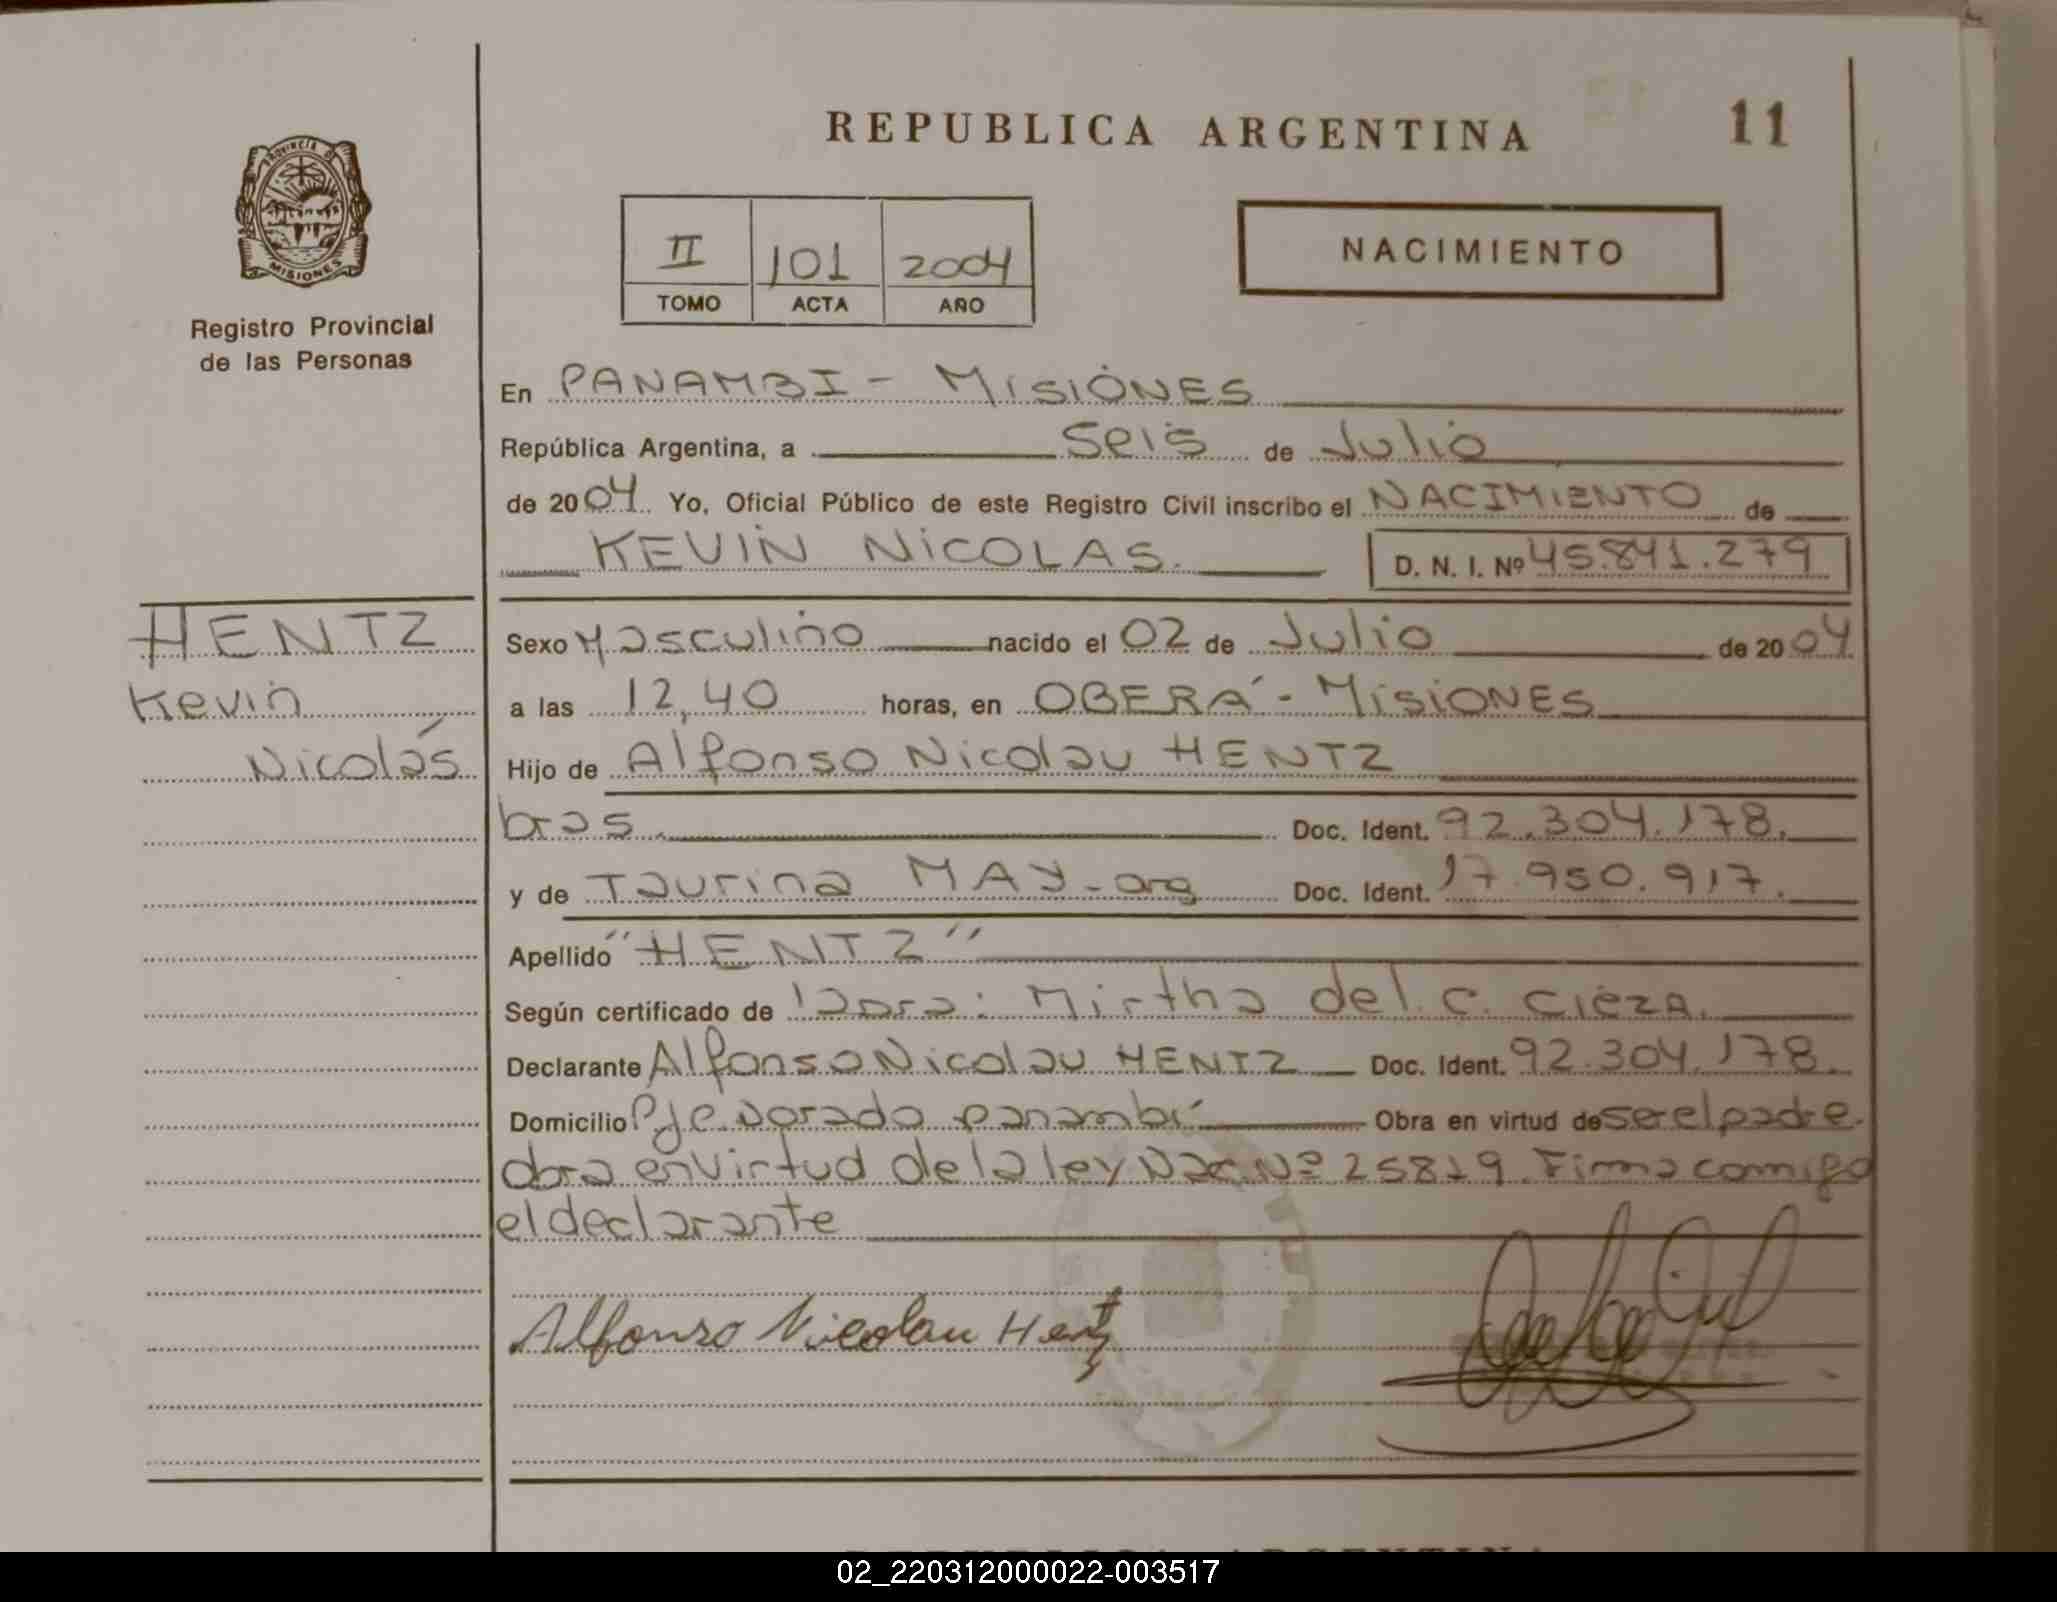 REPUBLICA ARGENTINA
11
PROVINCIA DE
MISIONES
Registro Provincial
de las Personas
II 101 2004
TOMO ACTA AÑO
NACIMIENTO
En PANAMBI - MISIONES
República Argentina, a Seis de Julio
de 2004 Yo, Oficial Público de este Registro Civil inscribo el NACIMIENTO de
KEVIN NICOLAS. D. N. I. Nº 45.841.279
HENTZ
Kevin
Nicolás
Sexo Masculino nacido el 02 de Julio de 2004
a las 12,40 horas, en OBERÁ - MISIONES
Hijo de Alfonso Nicolau HENTZ
bras. Doc. Ident. 92.304.178.
y de Taurina MAY - arg Doc. Ident. 17.950.917.
Apellido "HENTZ"
Según certificado de Mirtha del C. CIEZA.
Declarante Alfonso Nicolau HENTZ Doc. Ident. 92.304.178.
Domicilio Pje Dorado Panambí Obra en virtud de ser el padre.
obra en virtud de la ley Nac. Nº 25819. Firma comigo
el declarante
Alfonso Nicolau Hentz
REPUBLICA ARGENTINA
02_220312000022-003517